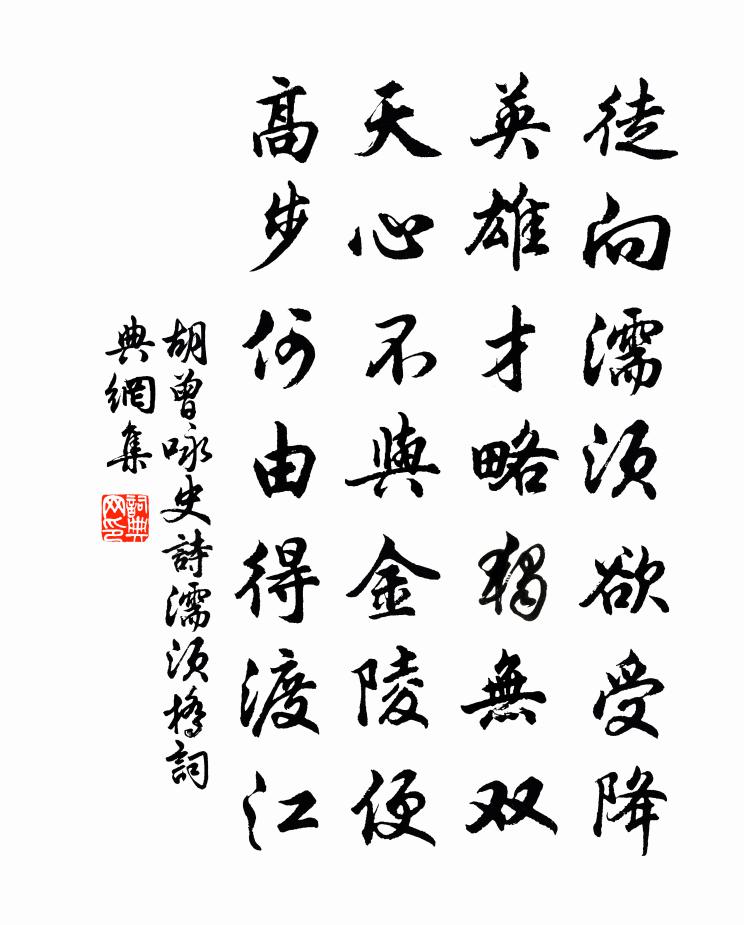 徒向濡須欲受降
英雄才略獨無双
天心不與金陵便
高步何由得渡江
胡曾咏史詩濡須橋詞
典網集
詞典
网印